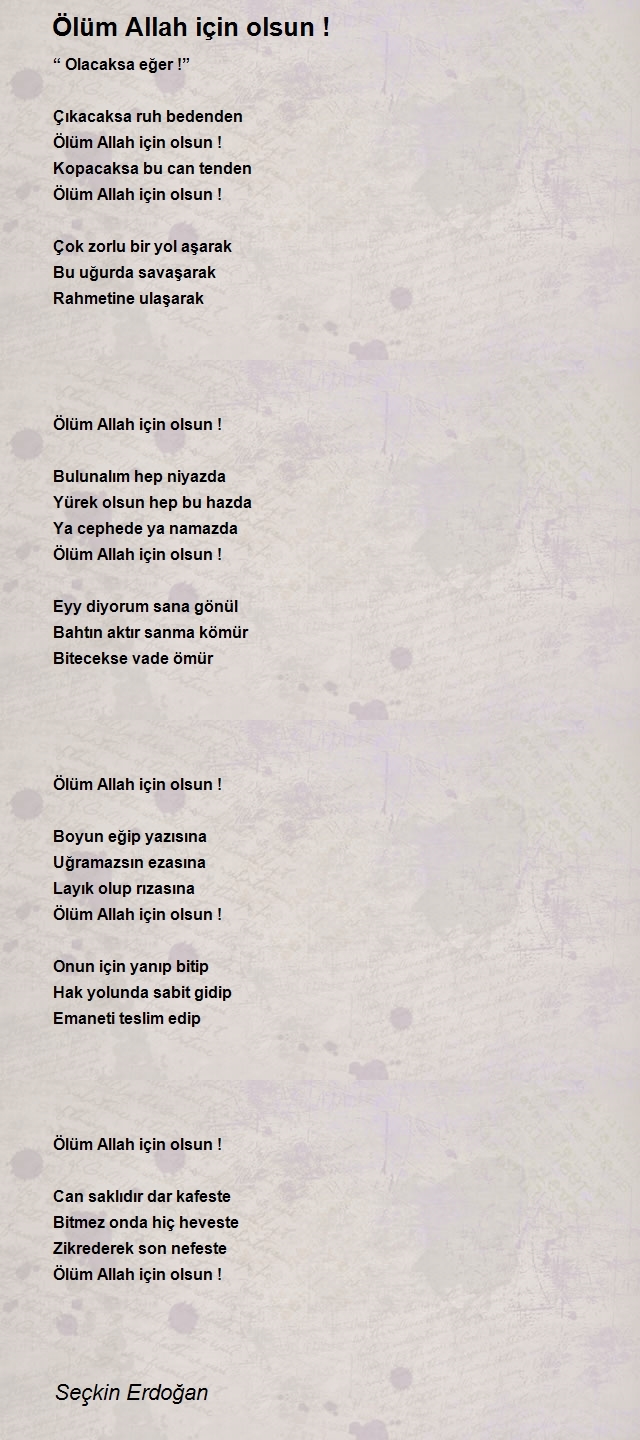 Ölüm Allah için olsun !
“ Olacaksa eğer !”
Çıkacaksa ruh bedenden
Ölüm Allah için olsun !
Kopacaksa bu can tenden
Ölüm Allah için olsun !
Çok zorlu bir yol aşarak
Bu uğurda savaşarak
Rahmetine ulaşarak
Ölüm Allah için olsun !
Bulunalım hep niyazda
Yürek olsun hep bu hazda
Ya cephede ya namazda
Ölüm Allah için olsun !
Eyy diyorum sana gönül
Bahtın aktır sanma kömür
Bitecekse vade ömür
Ölüm Allah için olsun !
Boyun eğip yazısına
Uğramazsın ezasına
Layık olup rızasına
Ölüm Allah için olsun !
Onun için yanıp bitip
Hak yolunda sabit gidip
Emaneti teslim edip
Ölüm Allah için olsun !
Can saklıdır dar kafeste
Bitmez onda hiç heveste
Zikrederek son nefeste
Ölüm Allah için olsun !
Seçkin Erdoğan